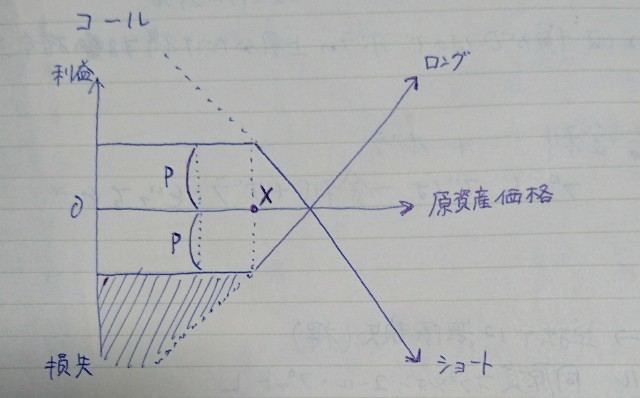 コール
利益
ロング
P
0
X
原資産価格
P
損失
ショート